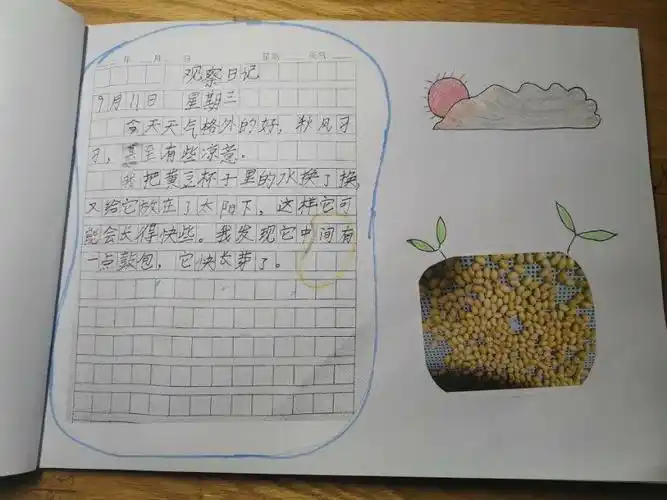 年 月 日 星期 天气
观察日记
9月11日 星期三
今天天气格外的好，秋风习
习，甚至有些凉意。
我把黄豆杯子里的水换了换，
又给它放在了太阳下，这样它可
能会长得快些。我发现它中间有
一点鼓包，它快长芽了。